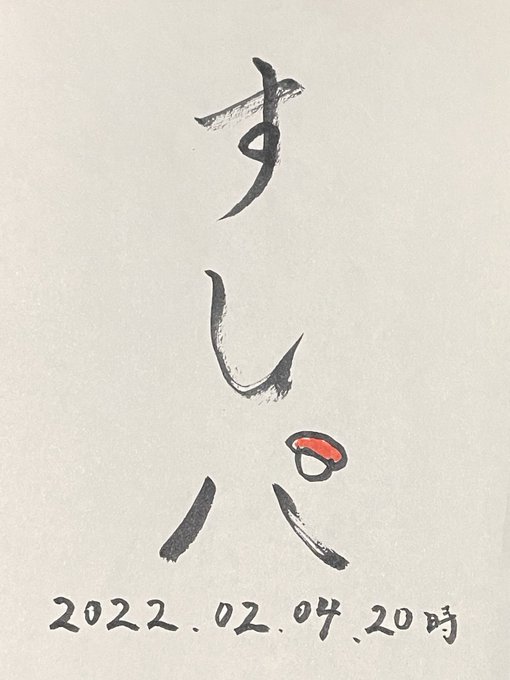 すしパ
2022.02.04、20時